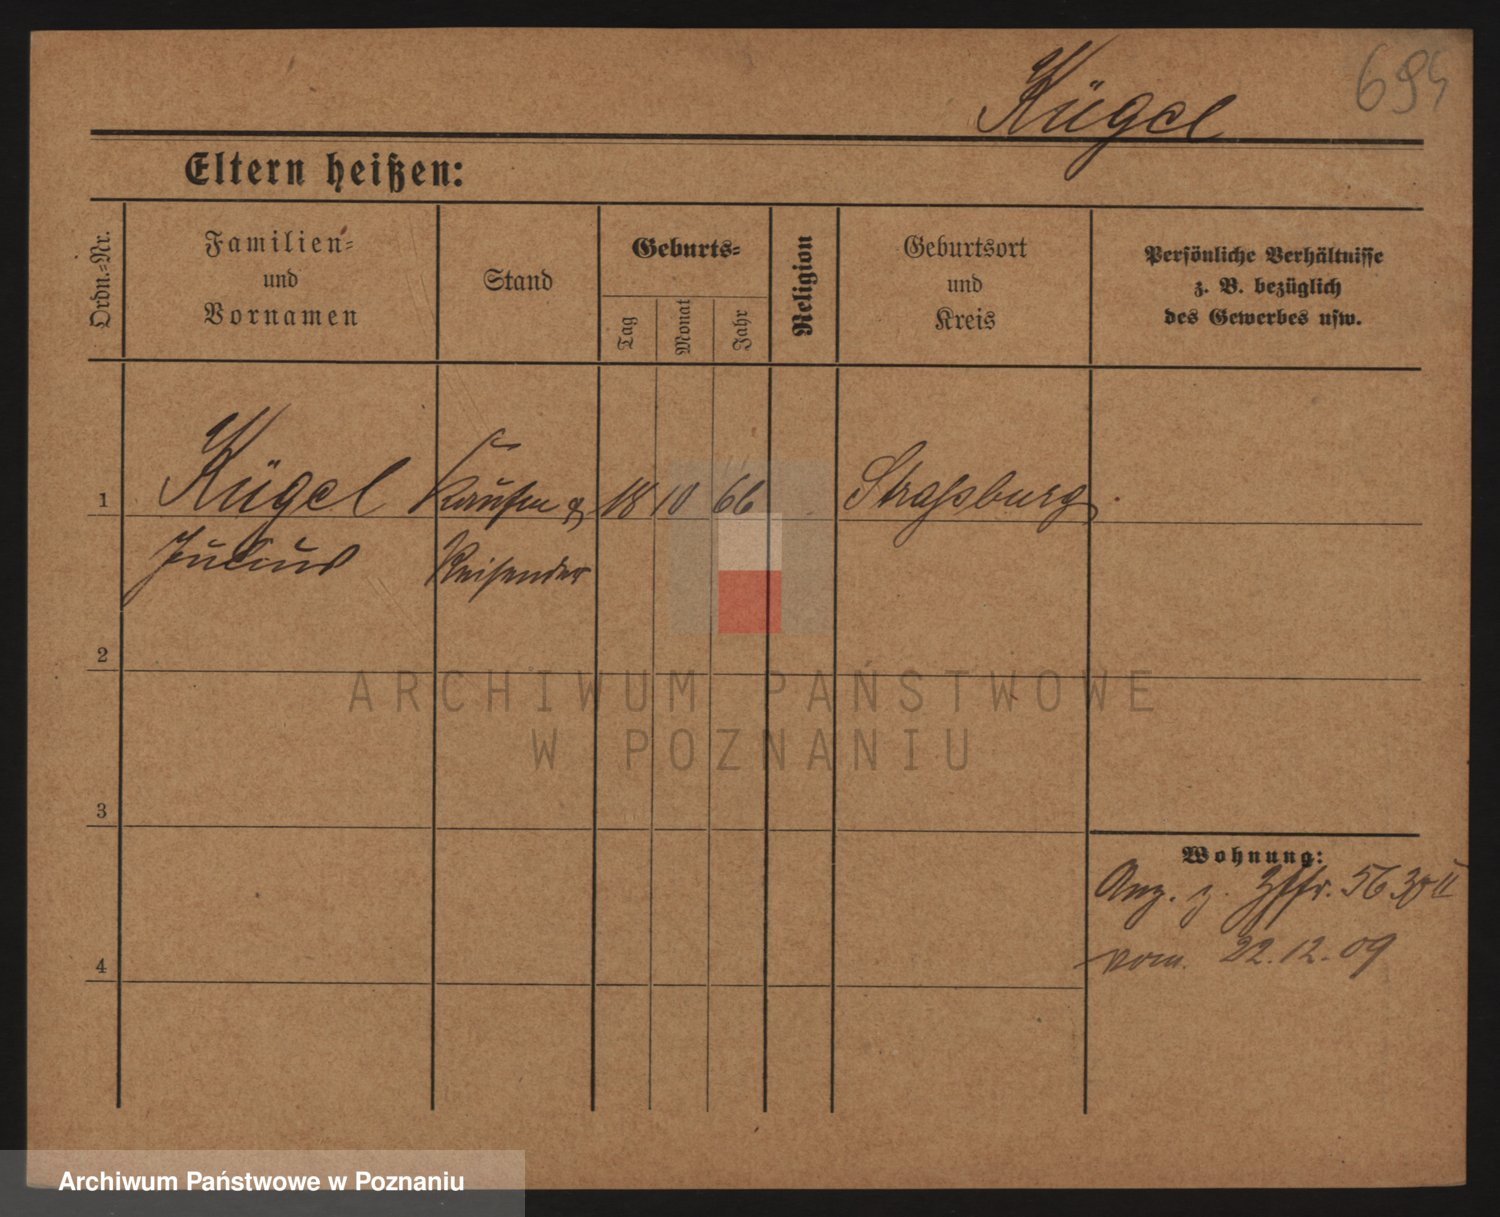 Kügel
Eltern heißen:
Ordn.=Nr.
Familien=
und
Vornamen
Stand
Geburts=
Tag
Monat
Jahr
Religion
Geburtsort
und
Kreis
Persönliche Verhältnisse
z. B. bezüglich
des Gewerbes usw.
1
Kügel
Julius
Reisender
18
10
66
Strassburg
2
3
4
Wohnung:
Anz. z.
vom. 22.12.09
ARCHIWUM PAŃSTWOWE
W POZNANIU
Archiwum Państwowe w Poznaniu